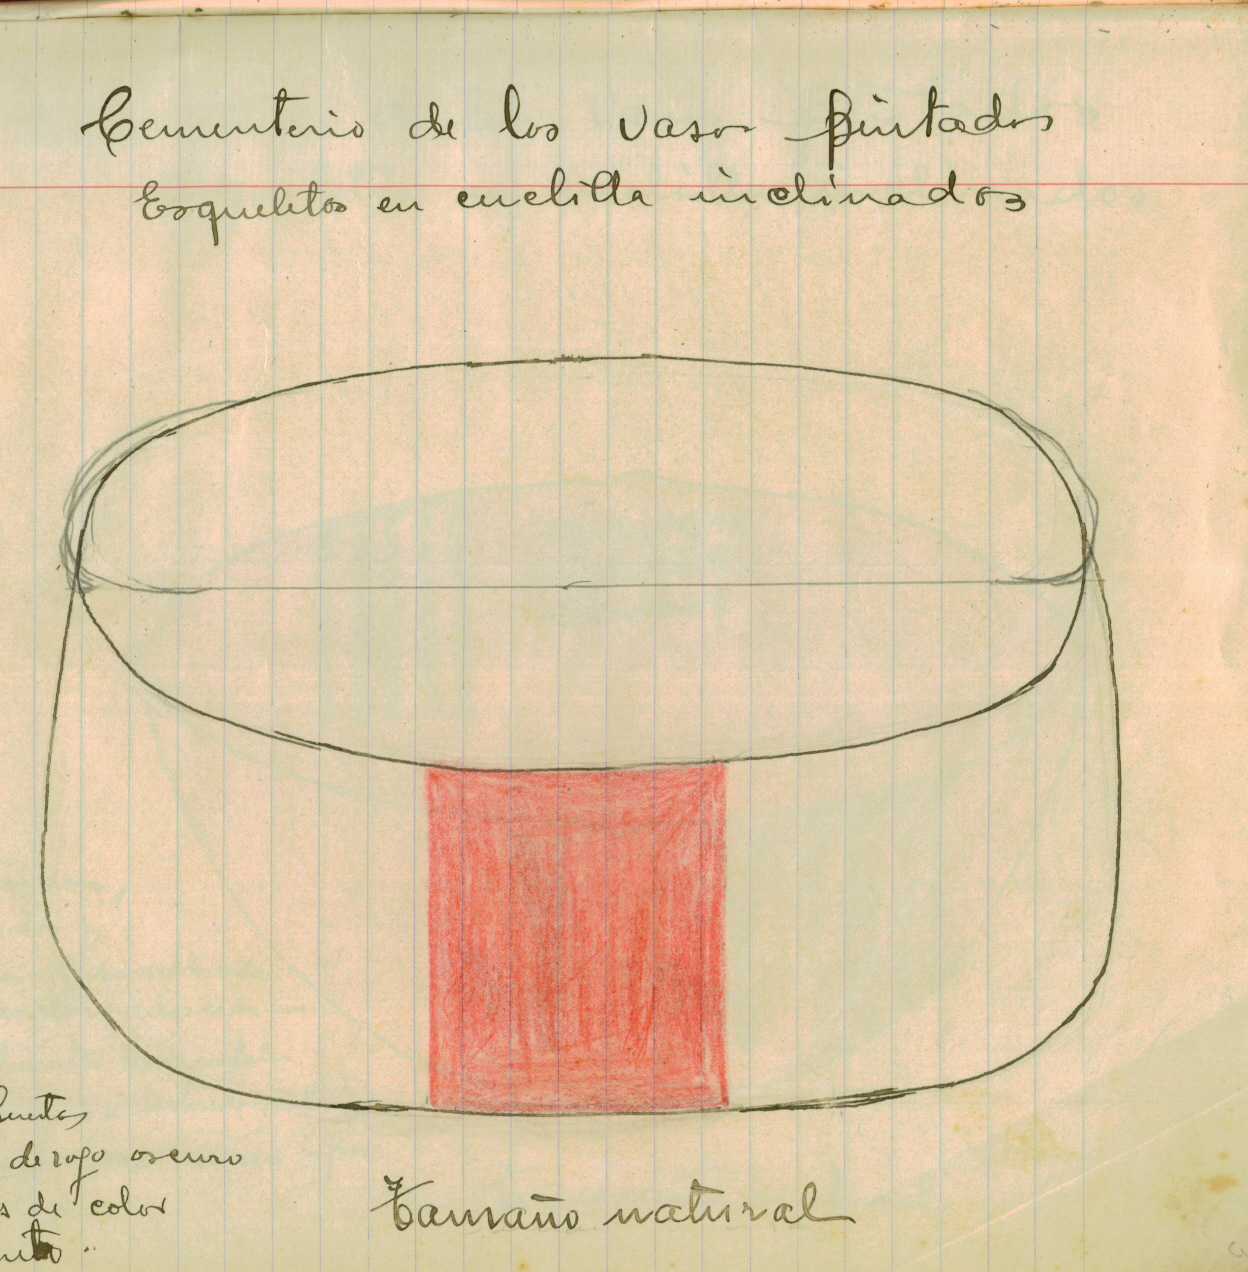 Cementerio de los vasos pintados
Esqueletos en cuclilla inclinados
de rojo oscuro
de color
Tamaño natural